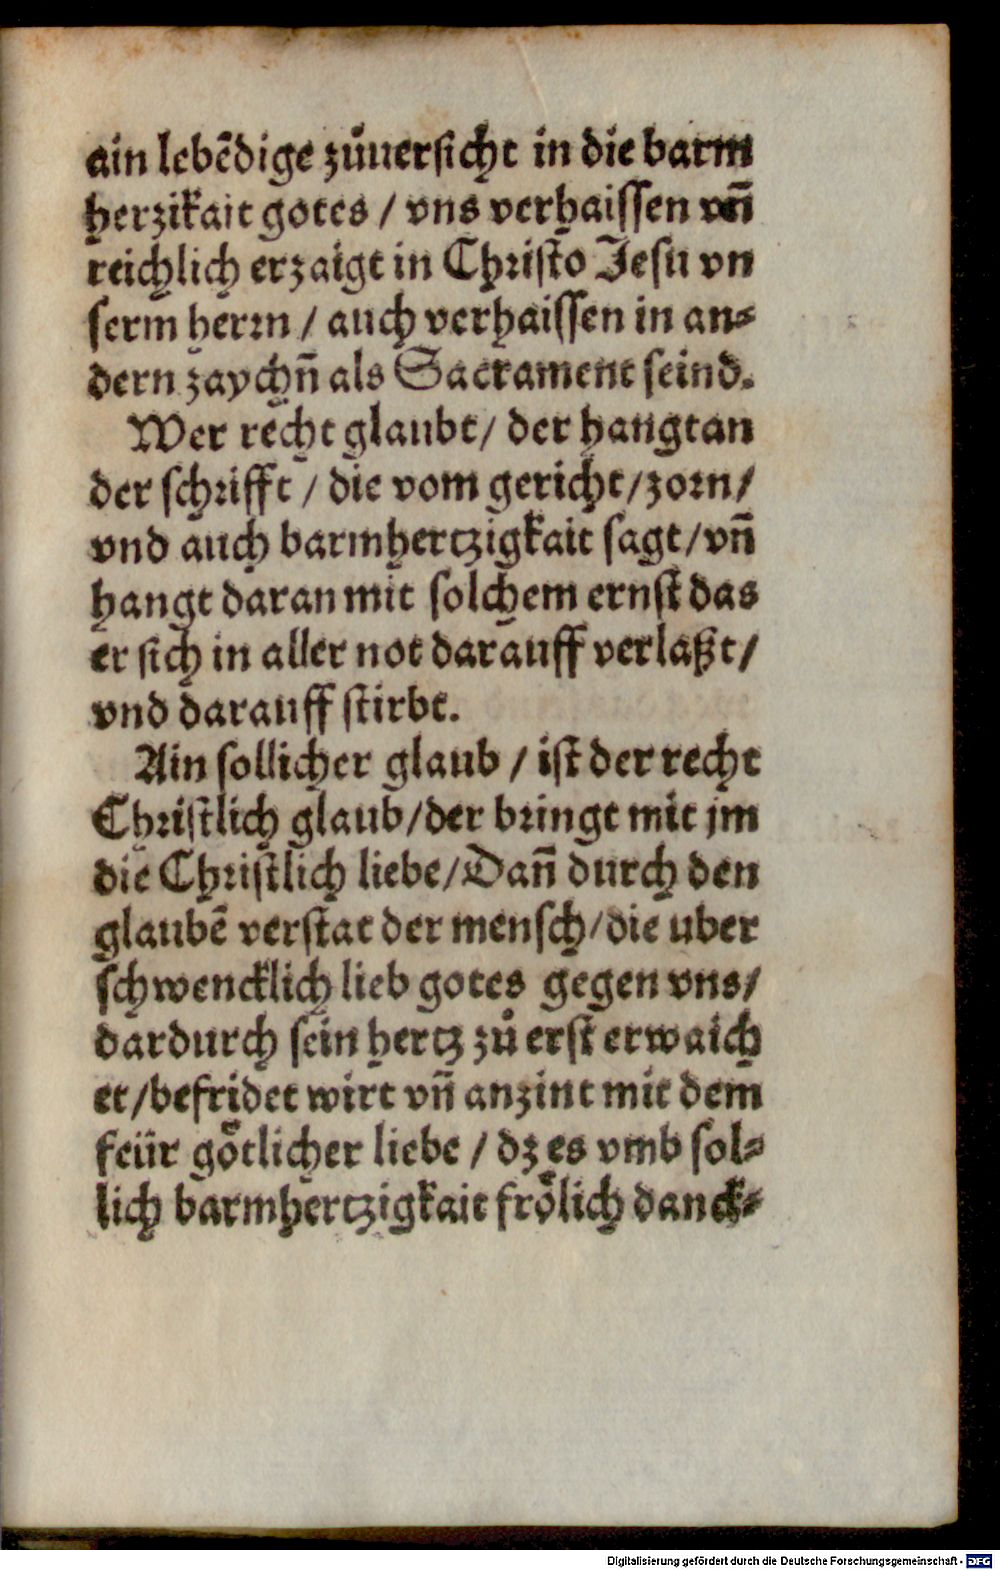 ain lebēdige zůuersicht in die barm
herzikait gotes / vns verhaissen vn̄
reichlich erzaigt in Christo Jesu vn
serm herrn / auch verhaissen in an⸗
dern zaychn̄ als Sacrament seind.
Wer recht glaubt / der hangt an
der schrifft / die vom gericht / zorn /
vnd auch barmhertzigkait sagt / vn̄
hangt daran mit solchem ernst das
er sich in aller not darauff verlaßt /
vnd darauff stirbt.
Ain sollicher glaub / ist der recht
Christlich glaub / der bringt mit jm
die Christlich liebe / Dan̄ durch den
glaubē verstat der mensch / die uber
schwencklich lieb gotes gegen vns /
dardurch sein hertz zů erst erwaich
et / befridet wirt vn̄ anzint mit dem
feür goͤtlicher liebe / dz es vmb sol⸗
lich barmhertzigkait froͤlich danck⸗
Digitalisierung gefördert durch die Deutsche Forschungsgemeinschaft - DFG